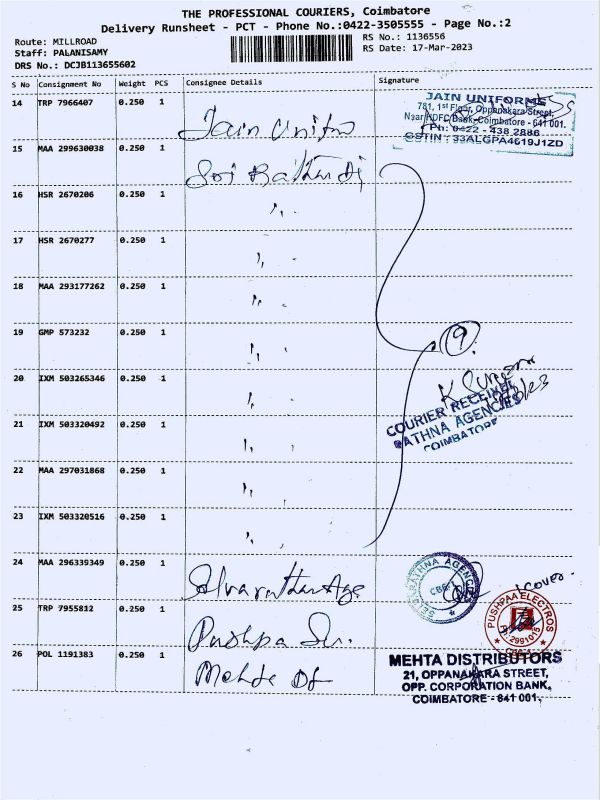 THE PROFESSIONAL COURIERS, Coimbatore
Delivery Runsheet - PCT - Phone No.:0422-3505555 - Page No.:2
Route: MILLROAD
RS No.: 1136556
Staff: PALANISAMY
RS Date: 17-Mar-2023
DRS No.: DCJB113655602
S No Consignment No Weight PCS Consignee Details Signature
14 TRP 7966407 0.250 1 Jain Unifor
JAIN UNIFORMS
781, 1st Floor, Oppanakara Street,
Near HDFC Bank, Coimbatore - 641 001.
Ph: 0422 - 438 2886
GSTIN : 33ALGPA4619J1ZD
15 MAA 299630038 0.250 1 Sri
16 HSR 2670206 0.250 1 ,,
17 HSR 2670277 0.250 1 ,,
18 MAA 293177262 0.250 1 ,,
19 GMP 573232 0.250 1 ,,
9
20 IXM 503265346 0.250 1 ,,
COURIER RECEIVED
RATHNA AGENCIES
COIMBATORE
21 IXM 503320492 0.250 1 ,,
22 MAA 297031868 0.250 1 ,,
23 IXM 503320516 0.250 1 ,,
24 MAA 296339349 0.250 1 Selvarathna Age
SELVARATHNA AGENCIES
1 cover
25 TRP 7955812 0.250 1 Pushpa
PUSHPAA ELECTROS
PH:2991015
26 POL 1191383 0.250 1 Mehta
MEHTA DISTRIBUTORS
21, OPPANAKARA STREET,
OPP. CORPORATION BANK,
COIMBATORE - 641 001.